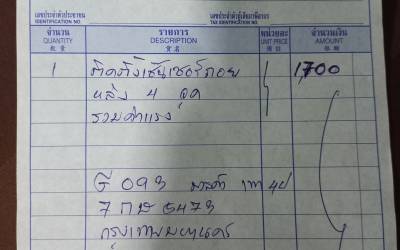 เลขประจำตัวประชาชน เลขประจำตัวผู้เสียภาษีอากร
IDENTIFICATION NO. TAX IDENTIFICATION NO.
จำนวน รายการ หน่วยละ จำนวนเงิน
QUANTITY DESCRIPTION UNIT PRICE AMOUNT
1 ติดตั้งเซ็นเซอร์ถอย 1700
หลัง 4 จุด
รวมค่าแรง
7 กฮ 6473
กรุงเทพมหานคร